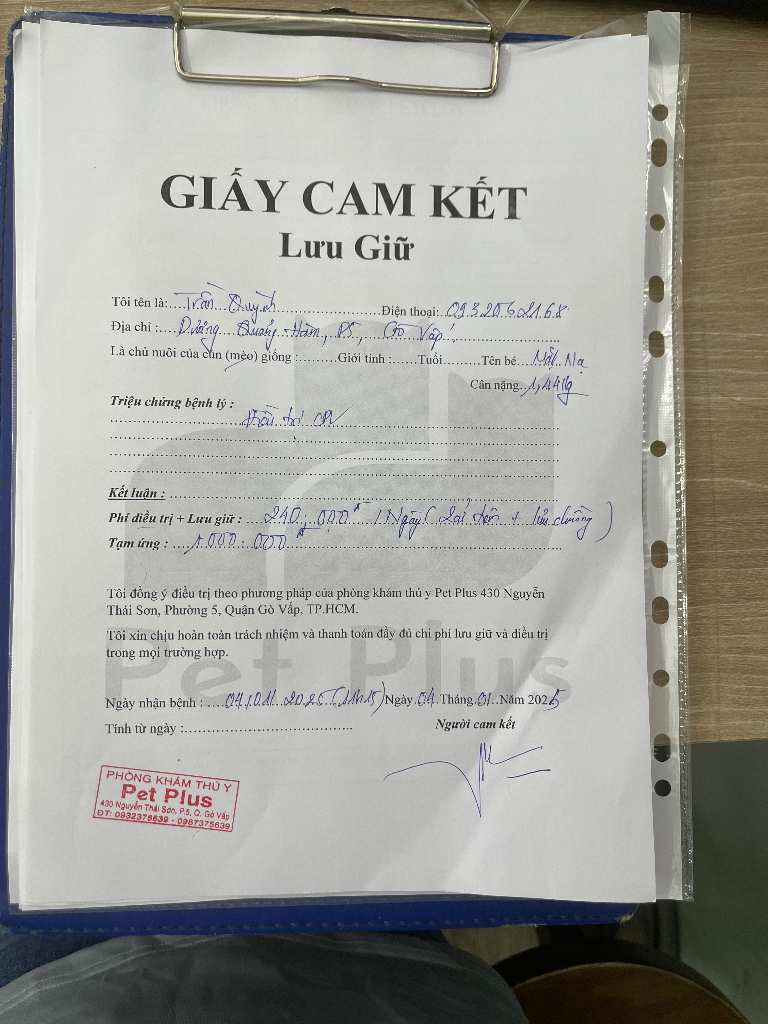 GIẤY CAM KẾT
Lưu Giữ
Tôi tên là:....Trần Quỳnh..........Điện thoại: 0932562168
Địa chỉ :..Dương Quảng Hàm, P5, Gò Vấp..........
Là chủ nuôi của cún (mèo) giống :.........Giới tính :.......Tuổi..........Tên bé...Mặt Nạ
Cân nặng..1,44kg
Triệu chứng bệnh lý :
điều trị CPV
Kết luận :
Phí điều trị + Lưu giữ : ....240.000đ / Ngày ( + lưu chuồng )
Tạm ứng : ...1.000.000đ
Tôi đồng ý điều trị theo phương pháp của phòng khám thú y Pet Plus 430 Nguyễn
Thái Sơn, Phường 5, Quận Gò Vấp, TP.HCM.
Tôi xin chịu hoàn toàn trách nhiệm và thanh toán đầy đủ chi phí lưu giữ và điều trị
trong mọi trường hợp.
Pet Plus
Ngày nhận bệnh : ....04/01/2025 (11h15) Ngày 04 Tháng 01 Năm 2025
Tính từ ngày :....................................
Người cam kết
PHÒNG KHÁM THÚ Y
Pet Plus
430 Nguyễn Thái Sơn, P.5, Q. Gò Vấp
ĐT: 0932375639 - 0987375639